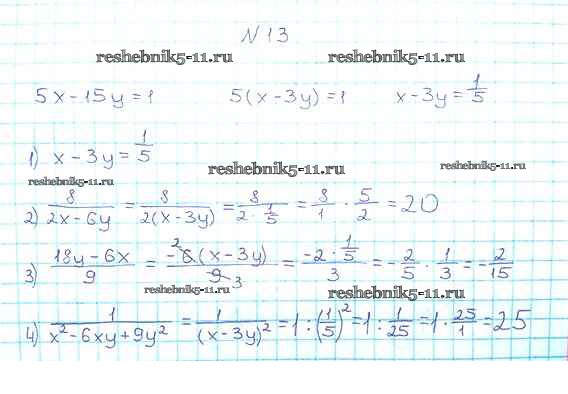 N 13
reshebnik5-11.ru reshebnik5-11.ru
5x-15y=1 5(x-3y)=1 x-3y=1/5
1) x-3y=1/5
reshebnik5-11.ru reshebnik5-11.ru
reshebnik5-11.ru
2) 8/(2x-6y) = 8/(2(x-3y)) = 8/(2·1/5) = 8/1 · 5/2 = 20
3) (18y-6x)/9 = (-6(x-3y))/9 2 3 = (-2·1/5)/3 = -2/5 · 1/3 = -2/15
reshebnik5-11.ru
reshebnik5-11.ru
4) 1/(x²-6xy+9y²) = 1/(x-3y)² = 1:(1/5)² = 1:1/25 = 1·25/1 = 25
reshebnik5-11.ru